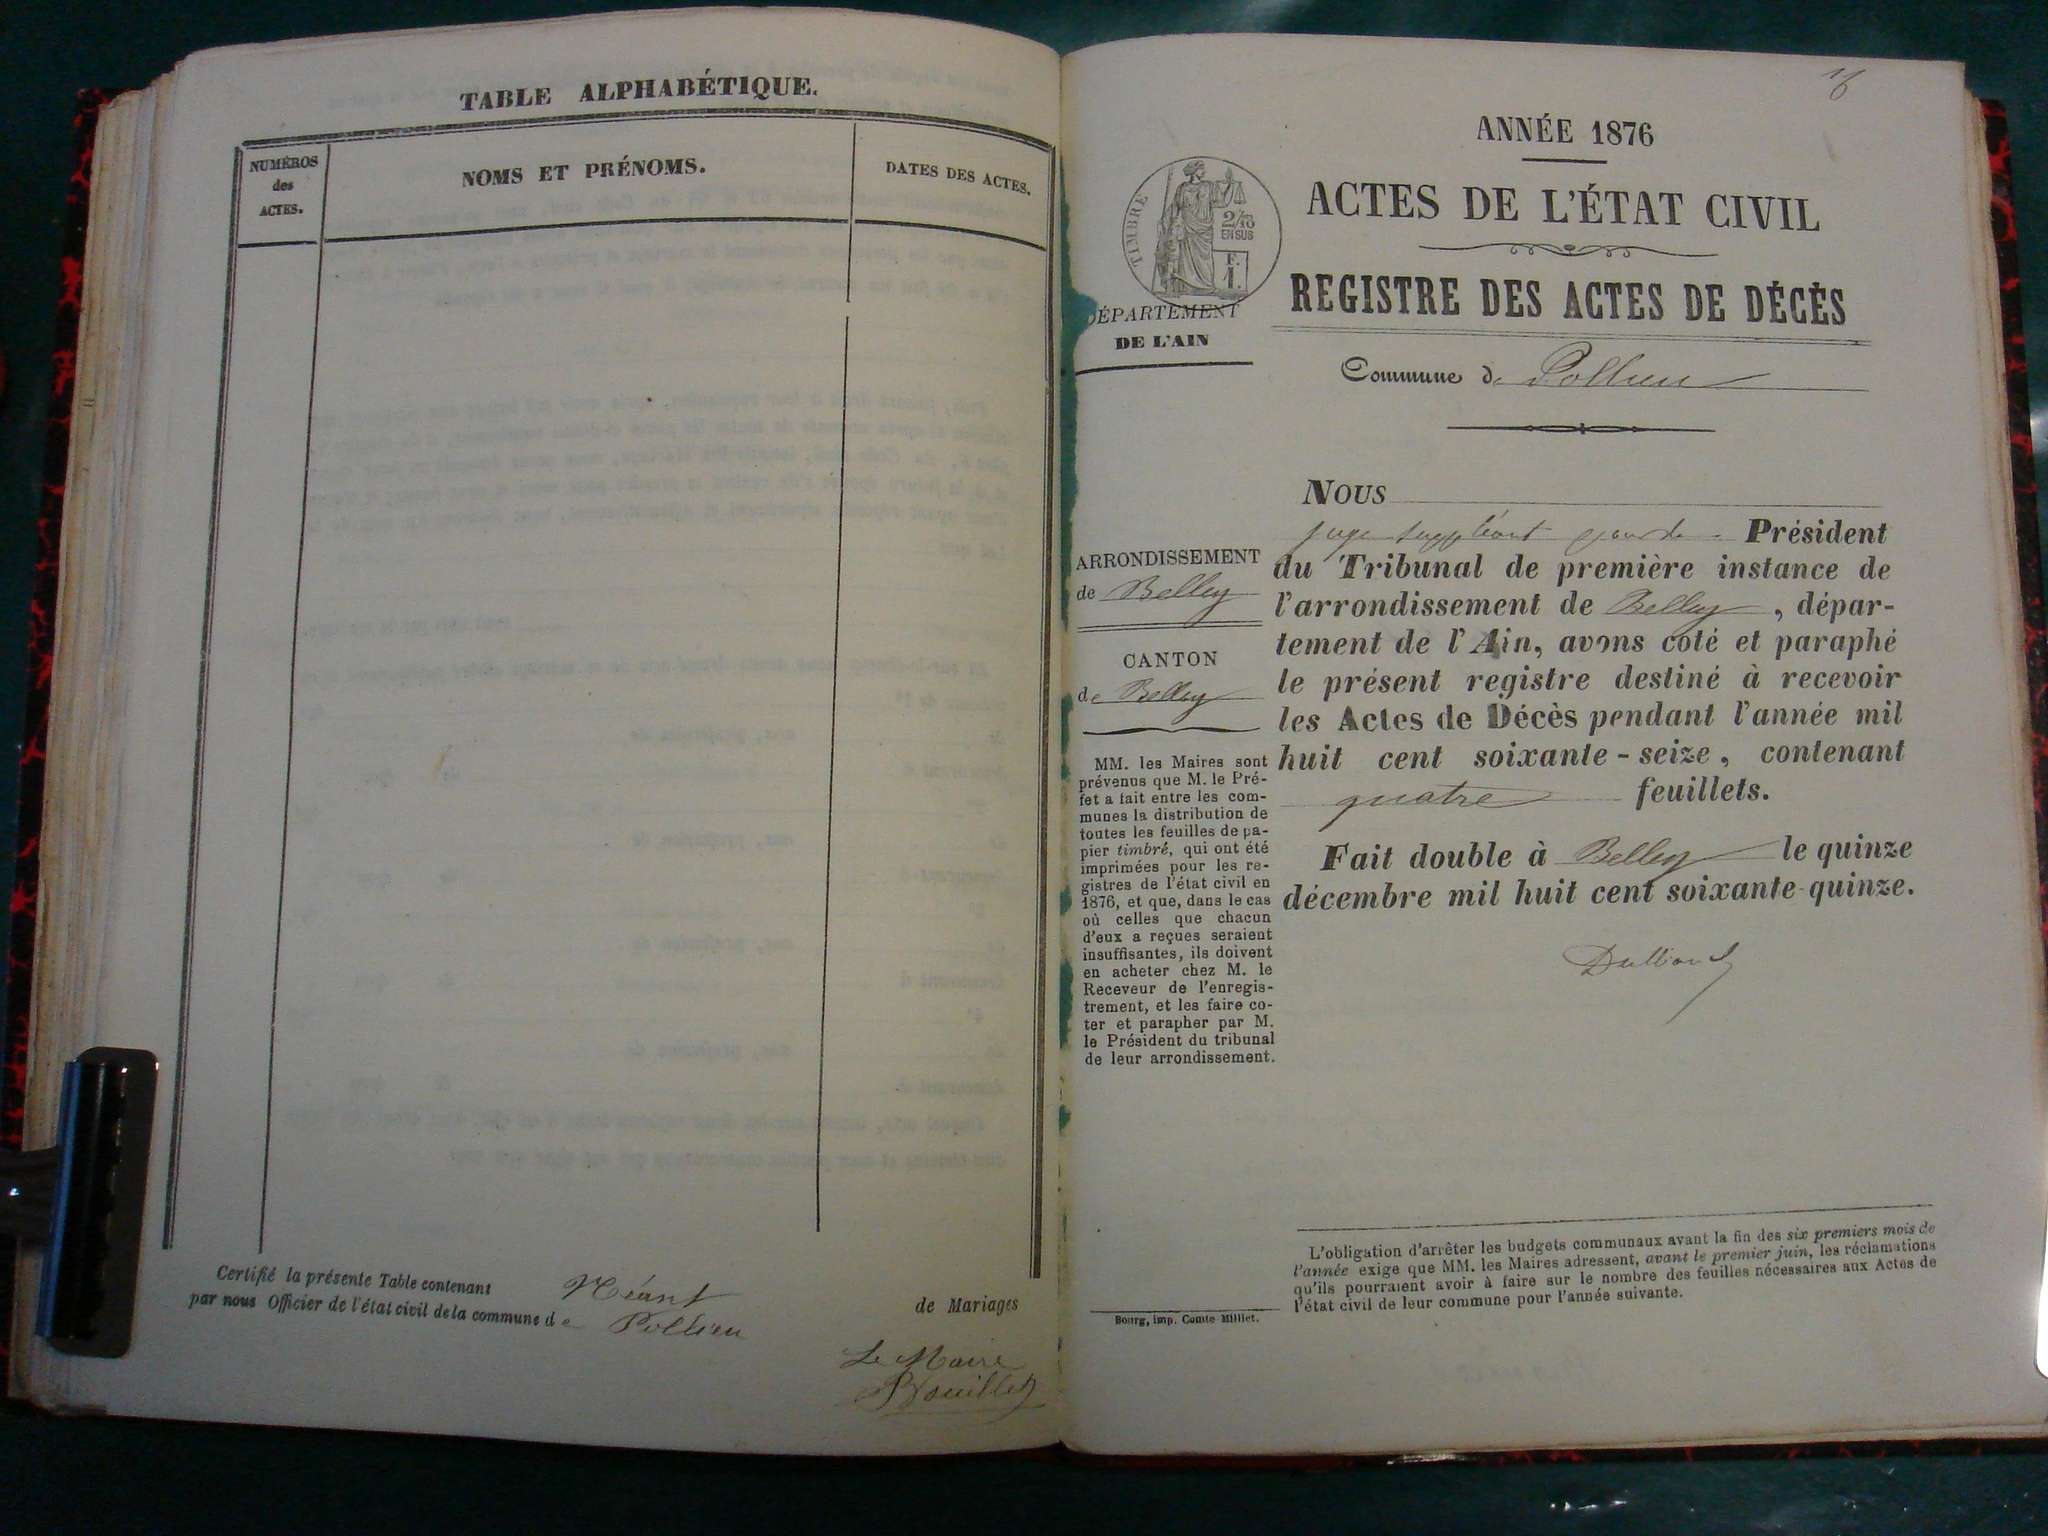 TABLE ALPHABÉTIQUE.
NUMÉROS
des
ACTES.
NOMS ET PRÉNOMS.
DATES DES ACTES.
Certifié la présente Table contenant Néant de Mariages
par nous Officier de l'état civil de la commune de Pollieu
Le Maire
ANNÉE 1876
ACTES DE L'ÉTAT CIVIL
REGISTRE DES ACTES DE DÉCÈS
TIMBRE
2/10
EN SUS
F.
1.
DÉPARTEMENT
DE L'AIN
Commune de Pollieu
ARRONDISSEMENT
de Belley
CANTON
de Belley
MM. les Maires sont
prévenus que M. le Pré-
fet a fait entre les com-
munes la distribution de
toutes les feuilles de pa-
pier timbré, qui ont été
imprimées pour les re-
gistres de l'état civil en
1876, et que, dans le cas
où celles que chacun
d'eux a reçues seraient
insuffisantes, ils doivent
en acheter chez M. le
Receveur de l'enregis-
trement, et les faire co-
ter et parapher par M.
le Président du tribunal
de leur arrondissement.
Bourg, imp. Comte Milliet.
NOUS
juge suppléant pour le Président
du Tribunal de première instance de
l'arrondissement de Belley, dépar-
tement de l'Ain, avons coté et paraphé
le présent registre destiné à recevoir
les Actes de Décès pendant l'année mil
huit cent soixante-seize, contenant
quatre feuillets.
Fait double à Belley le quinze
décembre mil huit cent soixante-quinze.
L'obligation d'arrêter les budgets communaux avant la fin des six premiers mois de
l'année exige que MM. les Maires adressent, avant le premier juin, les réclamations
qu'ils pourraient avoir à faire sur le nombre des feuilles nécessaires aux Actes de
l'état civil de leur commune pour l'année suivante.